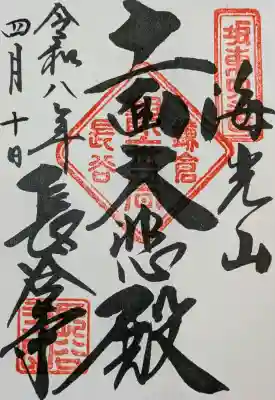 海光山
十一面大悲殿
長谷寺
令和八年
四月十日
鎌倉
長谷